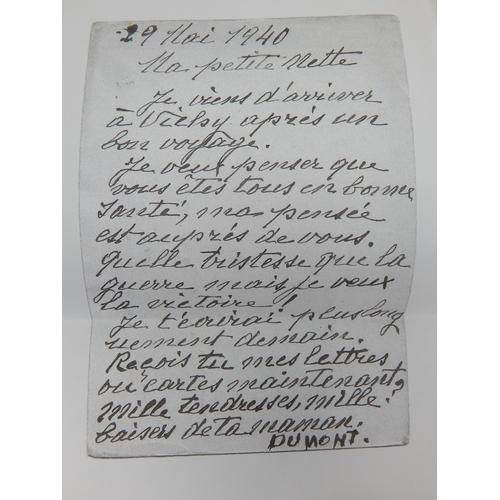 29 Mai 1940
Ma petite Nette
Je viens d'arriver
à Vichy après un
bon voyage.
Je veux penser que
vous êtes tous en bonne
santé, ma pensée
est auprés de vous.
Quelle tristesse que la
guerre mais je veux
la victoire !
Je t'écrirai plus long
uement demain.
Reçois tu mes lettres
ou cartes maintenant,
mille tendresses, mille
baisers de ta maman.
DUMONT.